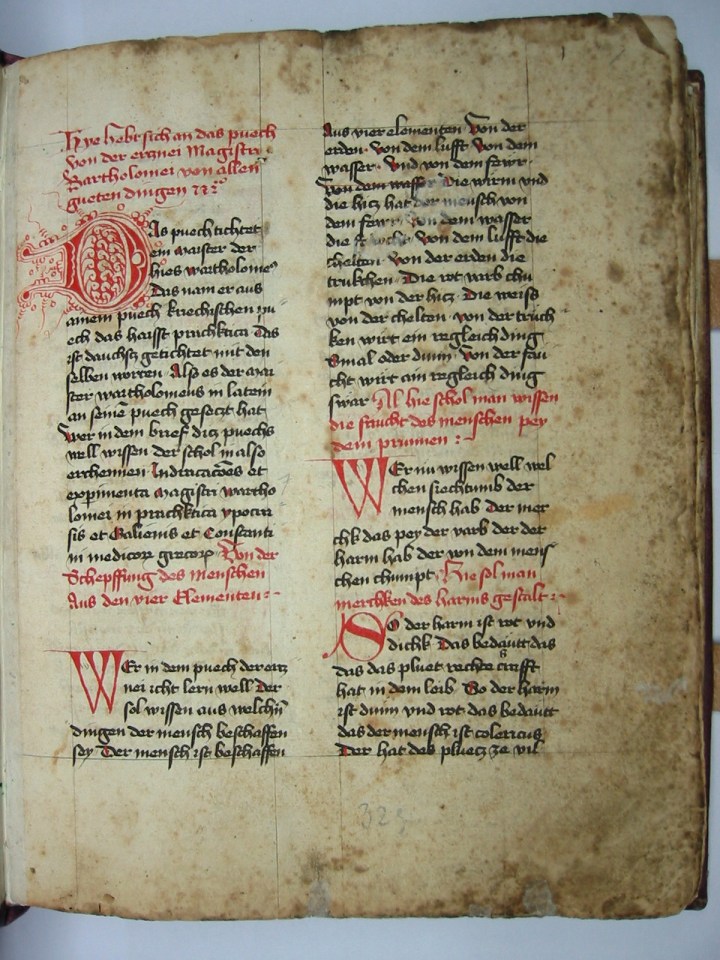 Hye hebt sich an das puech
von der ercznei Magistri
Bartholomei von allen
gueten dingen
Das puech tichtet
ein maister der
hies wartholomeus
Das nam er aus
ainem puech kriechischen pu
ech das haisst prachktica Das
ist dauchss getichtet mit den
selben worten Also es der mai
ster wartholomeus in latein
an seinē puech geseczt hat
Wer in dem brief dicz puechs
well wissen der schol in also
erchennen Indicacōes et
experimenta magistri wartho
lomei in prachktica ypocra
sis et Galienis et Constanti
ni medicoꝝ grecoꝝ Von der
Schepffung des menschen
Aus den vier Elementen
Wer in dem puech der ercz
nei icht lern well Der
sol wissen aus welchn̄
dingen der mensch beschaffen
sey Der mensch ist beschaffen
Aus vier elementen Von der
erden Von dem lufft Von dem
wasser Vnd von dem fewr
Von dem wasser Die wirm vnd
die hicz hat der mensch von
dem fewr Von dem wasser
die Von dem lufft die
chelten Von der erden die
trukchen Die rot varb chu
mpt von der hicz Die weiss
von der chelten Von der truch
ken wirt ein regleich ding
Smal oder dunn Von der feu
cht wirt ain regleich ding
swar Al hie schol man wissen
die faucht des menschen pey
dem prunnen
Wer nu wissen well wel
chen siechtumb der
mensch hab Der mer
chk das pey der varb der der
harm hab der von dem mens
chen chumpt Hie sol man
merchken des harms gestalt
So der harm ist rot vnd
dichk Das bedäutt das
das das pluet rechte crafft
hat in dem leib So der harm
ist dunn vnd rot das bedäutt
das der mensch ist colericus
Der hat des pluecz ze vil